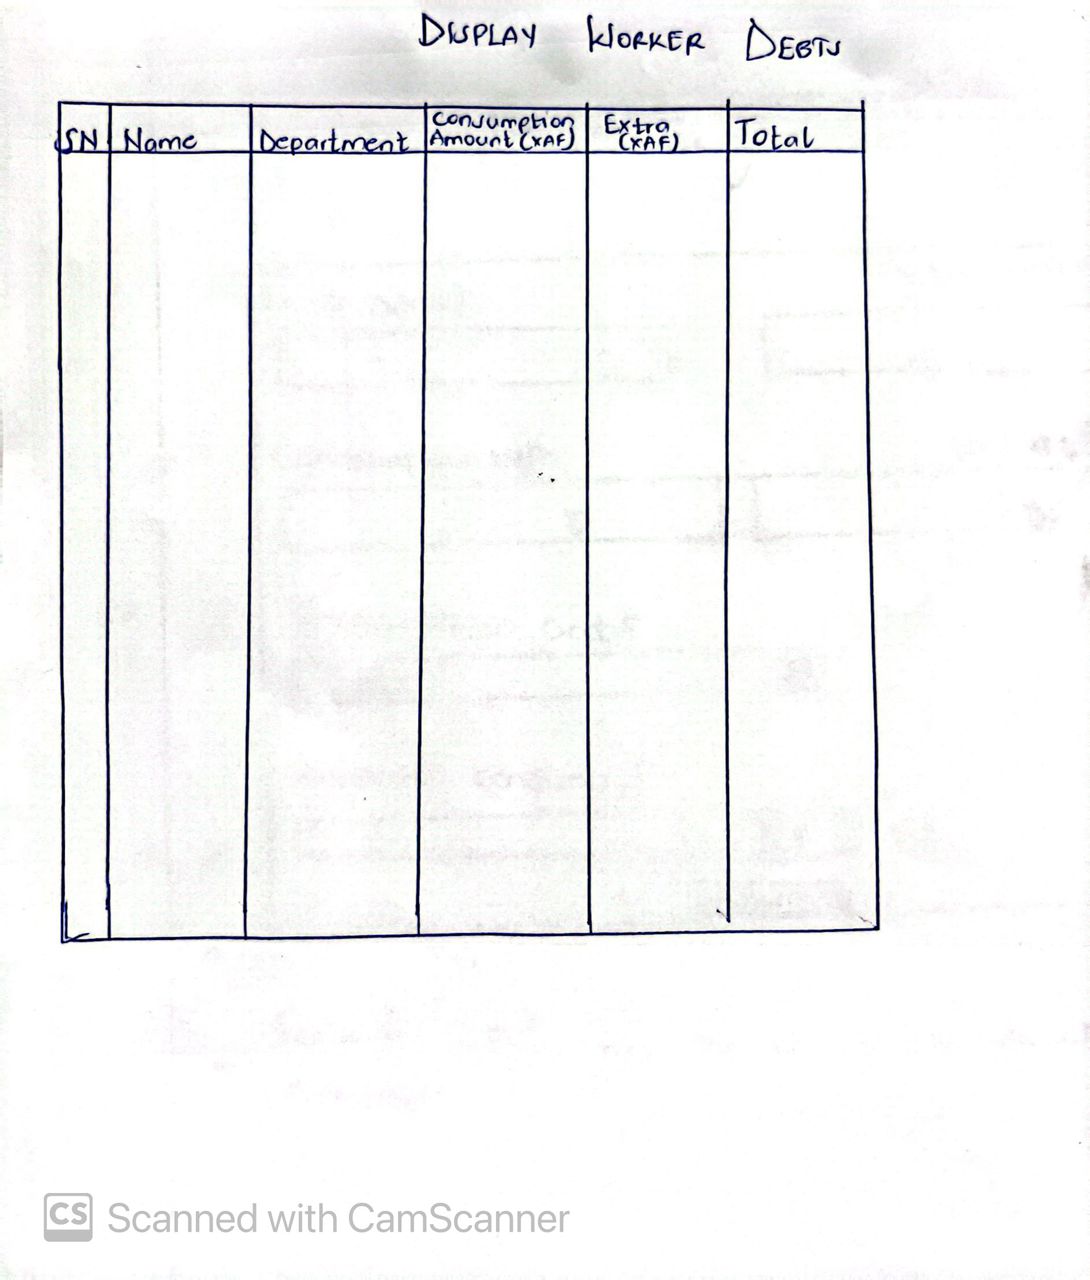 DISPLAY WORKER DEBTS
SN
Name
Department
Consumption
Amount (XAF)
Extra
(XAF)
Total
CS Scanned with CamScanner